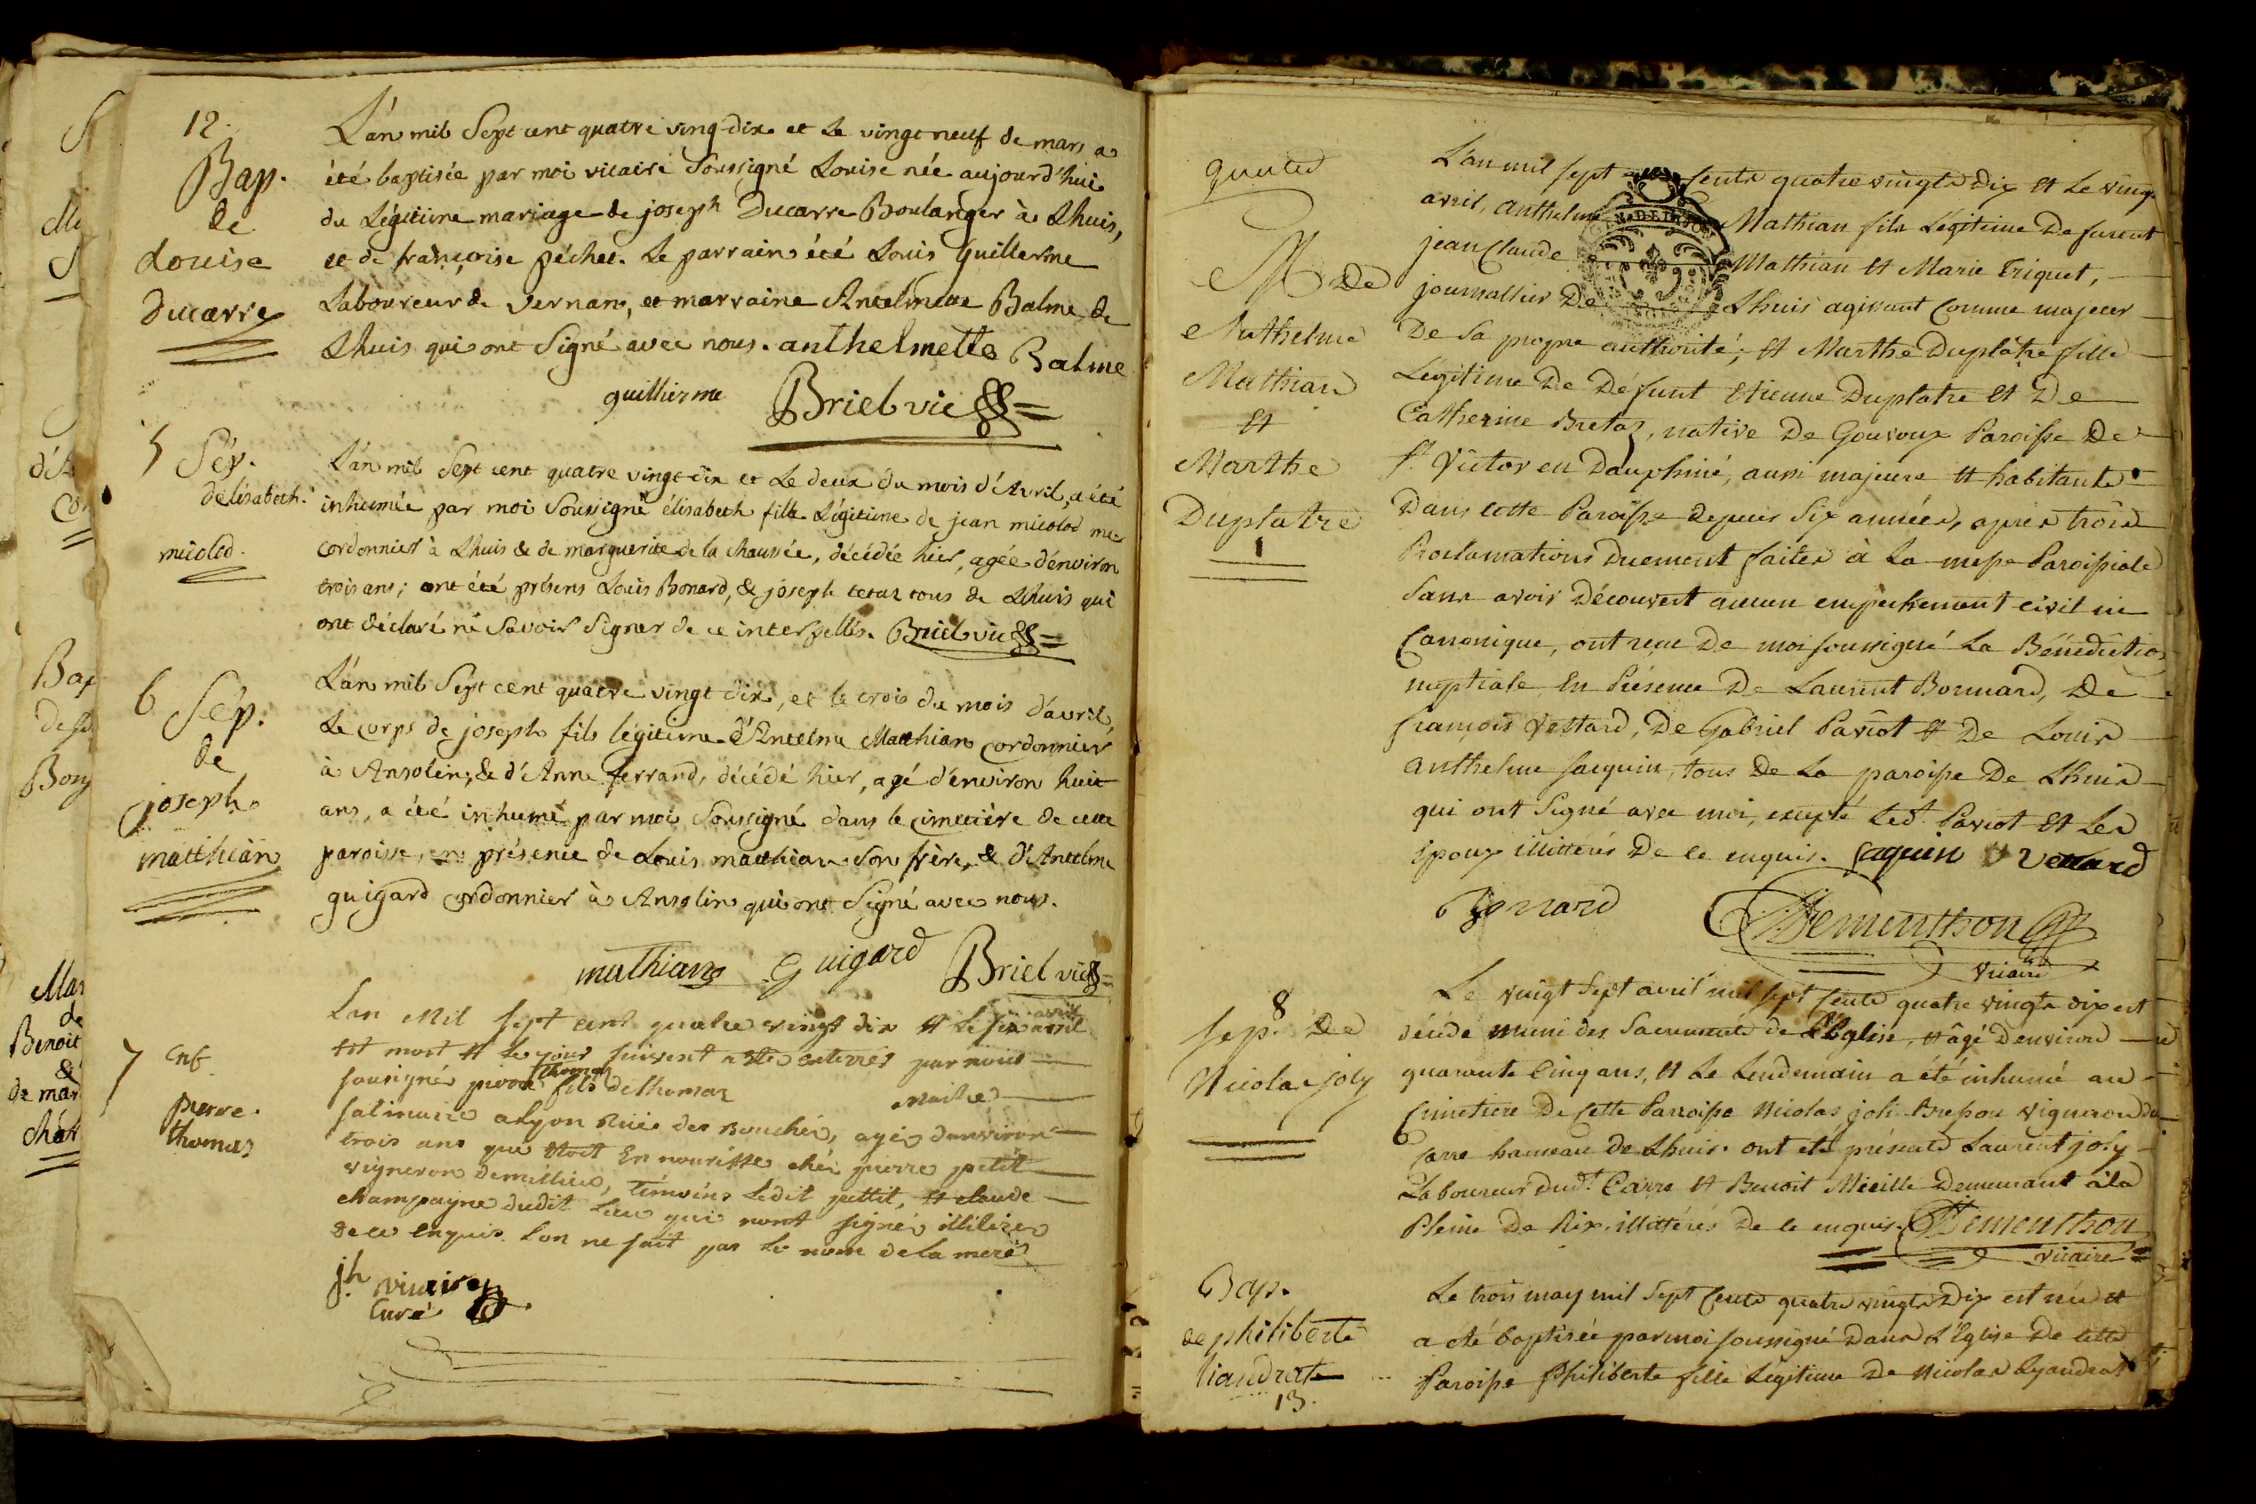 12.
Bap.
de
Louise
Ducarre
L'an mil Sept cent quatre ving-dix et Le vingt neuf de mars a
été baptisée par moi vicaire Soussigné Louise née aujourd'hui
du Légitime mariage de joseph Ducarre Boulanger à Lhuis,
et de françoise péchet. Le parrain a été Louis Guillerme
Laboureur de vernans, et marraine Antelmette Balme de
Lhuis qui ont Signé avec nous. anthelmette Balme
guillierme Briel vic
5 Sép.
d'élisabeth
micolod.
L'an mil Sept cent quatre vingt-dix et Le deux du mois d'Avril, a été
inhumée par moi Soussigné élisabeth fille Légitime de jean micolod me
Cordonnier à Lhuis & de marguerite de la chaussée, décédée hier, agée d'environ
trois ans; ont été présens Louis Bonard, & joseph tetaz tous de Lhuis qui
ont déclaré ne Savoir Signer de ce interpellés. Briel vic
6 Sép.
de
joseph
matthian
L'an mil Sept cent quatre vingt dix, et le trois du mois d'avril,
Le corps de joseph fils légitime d'Antelme Matthian cordonnier
à Ansolin, & d'Anne ferrand, décédé hier, agé d'environ huit
ans, a été inhumé par moi Soussigné dans le cimetière de cette
paroisse, en présence de Louis matthian Son frère, & d'Antelme
guigard cordonnier à Ansolin qui ont Signé avec nous.
mathian Guigard Briel vic
7 Enf.
pierre
thomas
Lan Mil Sept cent quatre vingt dix et le six avril
est mort et le jour suivant a été enterré par nous
sousigné pierre thomas fils de thomas Maitre
salinaire a Lyon Rüe des Bouchés, agé denviron
trois ans qui étoit En nourisse chés pierre petit
vigneron demillieu, témoins Ledit pettit, et claude
champagne dudit Lieu qui nont signés illiterés
de ce enquis. Lon ne sait pas le nom de la mere
jh. vinaire
Curé
quater
M. de
Anthelme
Mathian
et
Marthe
Duplatre
L'an mil sept cents quatre vingts dix et le vingt
avril, anthelme Mathian fils Légitime de furent
jean Claude Mathian et Marie Triquet,
journallier de Lhuis agissant comme majeur
de sa propre authorité; et Marthe Duplâtre fille
Légitime de défunt Etienne Duplatre et de
Catherine Bretaz, native de Gouvoux Paroisse de
St. Victor en Dauphiné, aussi majeure et habitante
dans cette Paroisse depuis six années, après trois
Proclamations duement faites à la messe Paroissiale
sans avoir découvert aucun empechement civil ni
Canonique, ont reçu de moi soussigné La Bénédiction
nuptiale en Présence de Laurent Bonnard, de
françois Vettard, de Gabriel Paviot et de Louis
anthelme Jacquin, tous de la paroisse de Lhuis
qui ont signé avec moi, excepté led. Paviot et les
époux illittérés de ce enquis. Jaquin Vettard
Bonnard Dementhon
vicaire
8
sep. de
Nicolas joly
Le vingt sept avril mil sept cents quatre vingts dix est
décédé muni des Sacrements de L'Eglise, et âgé d'environ
quarante Cinq ans, et le Lendemain a été inhumé au
Cimetiere de cette Parroisse Nicolas joli Brepou vigneron du
Carre hameau de Lhuis. ont eté présents Laurent joly
Laboureur dud. Carre et Benoit Mieille demeurant à la
Pleine de Rix, illittérés de ce enquis. Dementhon
vicaire
Bap.
de philiberte
liandrat
13.
Le trois may mil sept cents quatre vingts dix est née et
a été baptisée par moi soussigné dans L'Eglise de cette
Paroisse Philiberte fille Légitime de Nicolas Lyandrat